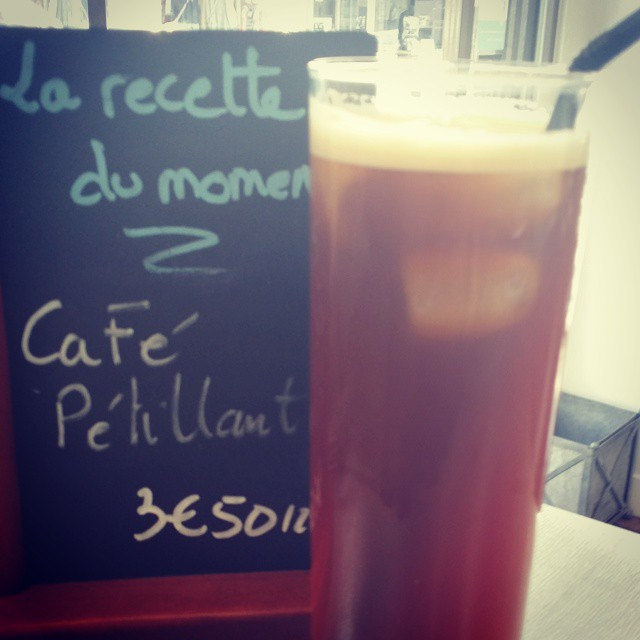 La recette
du momen
Café
Pétillant
3€50